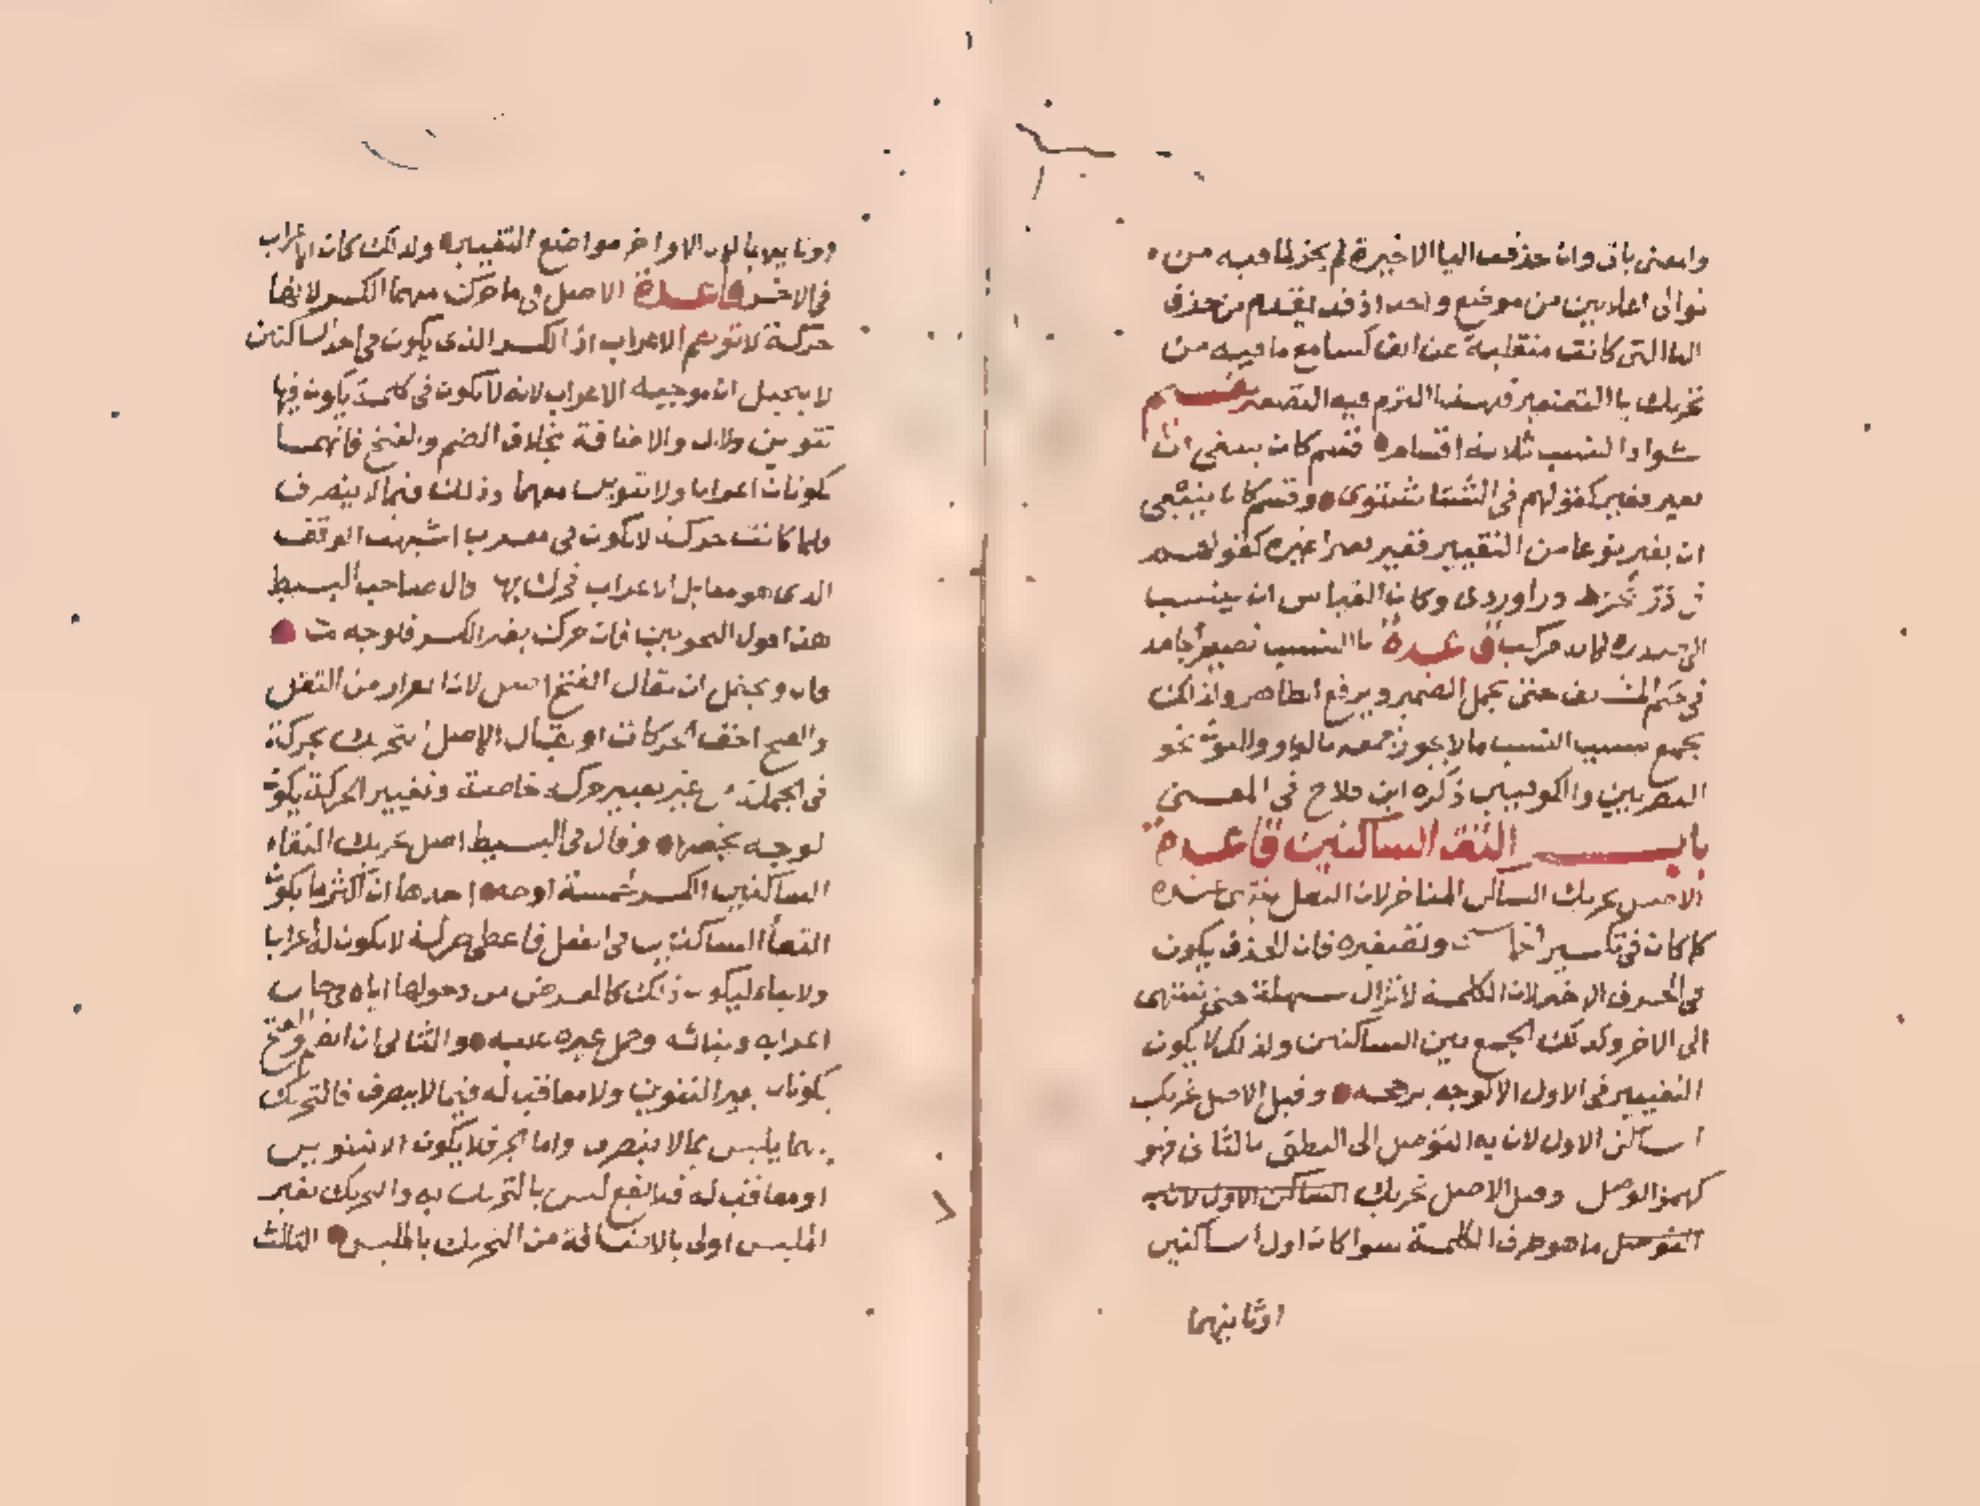 وامعنى باق وان حذفت اليا الاخيرة لم يجز لما فيه من
توالى اعلالين من موضع واحد اذ قد تقدم من حذف
اليا التى كانت منقلبة عن الف كسا مع ما فيه من
تحريك يا التصغير فهذا التزم فيه التصغير تقسيم
شواذ النسب ثلاثة اقسام قسم كان ينبغى ان
يغير فغير كقولهم فى الشتا شتوى وقسم كان ينبغى
ان يغير نوعا من التغيير فغير تغيرا غيره كقولهم
فى دارابجرد دراوردى وكان القياس ان ينسب
الى صدره لانه مركب قاعدة يا النسب تصير الجامد
فى حكم المشتق حتى يحمل الضمير ويرفع الظاهر ولذلك
يجمع بسبب النسب ما لا يجوز جمعه بالواو والنون نحو
البصريين والكوفيين ذكره ابن فلاح فى المغنى
باب التقا الساكنين قاعدة
الاصل تحريك الساكن المتاخر لان الثقل ينتهى عنده
كما كان فى تكسير الخماسى وتصغيره فان الحذف يكون
فى الحرف الاخير لان الكلمة لا تزال سهلة حتى تنتهى
الى الاخر وكذلك الجمع بين الساكنين ولذلك لا يكون
التغيير فى الاول الا لوجه يرجحه وقيل الاصل تحريك
الساكن الاول لان به التوصل الى النطق بالثانى فهو
كهمز الوصل وقيل الاصل تحريك الساكن الاول لانه به
التوصل ما هو طرف الكلمة سوا كان اول الساكنين
او ثانيهما
الاواخر مواضع التغيير ولذلك كان الاعراب
فى الاخر قاعدة الاصل فى ما حرك منهما الكسر لانها
حركة لا توهم الاعراب اذ الكسر الذى يكون فى احد الساكنين
لا يخيل ان موجبه الاعراب لانه لا يكون فى كلمة يكون فيها
تنوين ولا ال والاضافة بخلاف الضم والفتح فانهما
يكونان اعرابا ولا تنوين معهما وذلك فيما لا ينصرف
فلما كانت حركة لا تكون فى معرب اشبهت الوقف
الذى هو مقابل الاعراب فحرك بها قال صاحب البسيط
هذا قول النحويين فان حرك بغير الكسر فلوجه ما
قال ويحتمل ان يقال الفتح اصل لان الفرار من الثقل
والفتح اخف الحركات او يقال الاصل التحريك بحركة
فى الجملة من غير تعيين حركة خاصة وتعيين الحركة يكون
لوجه يخصها وقال فى البسيط اصل تحريك التقاء
الساكنين الكسر لخمسة اوجه احدها ان اكثر ما يكون
التقأ الساكنين فى الفعل فاعطى حركة لا تكون له اعرابا
ولا بناء ليكون ذلك كالعوض من دخولها اياه فى حال
اعرابه وبنائه وحمل غيره عليه والثانى ان الضم والفتح
يكونان بغير التنوين ولا معاقب له فيما لا ينصرف فالتحريك
بهما يلبس بما لا ينصرف واما الجر فلا يكون الا بتنوين
او معاقب له فلا يقع لبس بالتحريك به والتحريك بغير
الملبس اولى بالاضافة من التحريك بالملبس الثالث